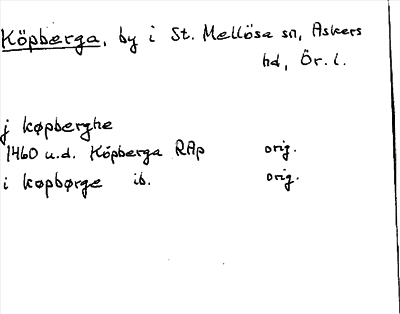 Köpberga, by i St. Mellösa sn, Askers
hd, Ör. l.
j køpberghe
1460 u.d. Köpberga RAp orig.
i køpbørge ib. orig.